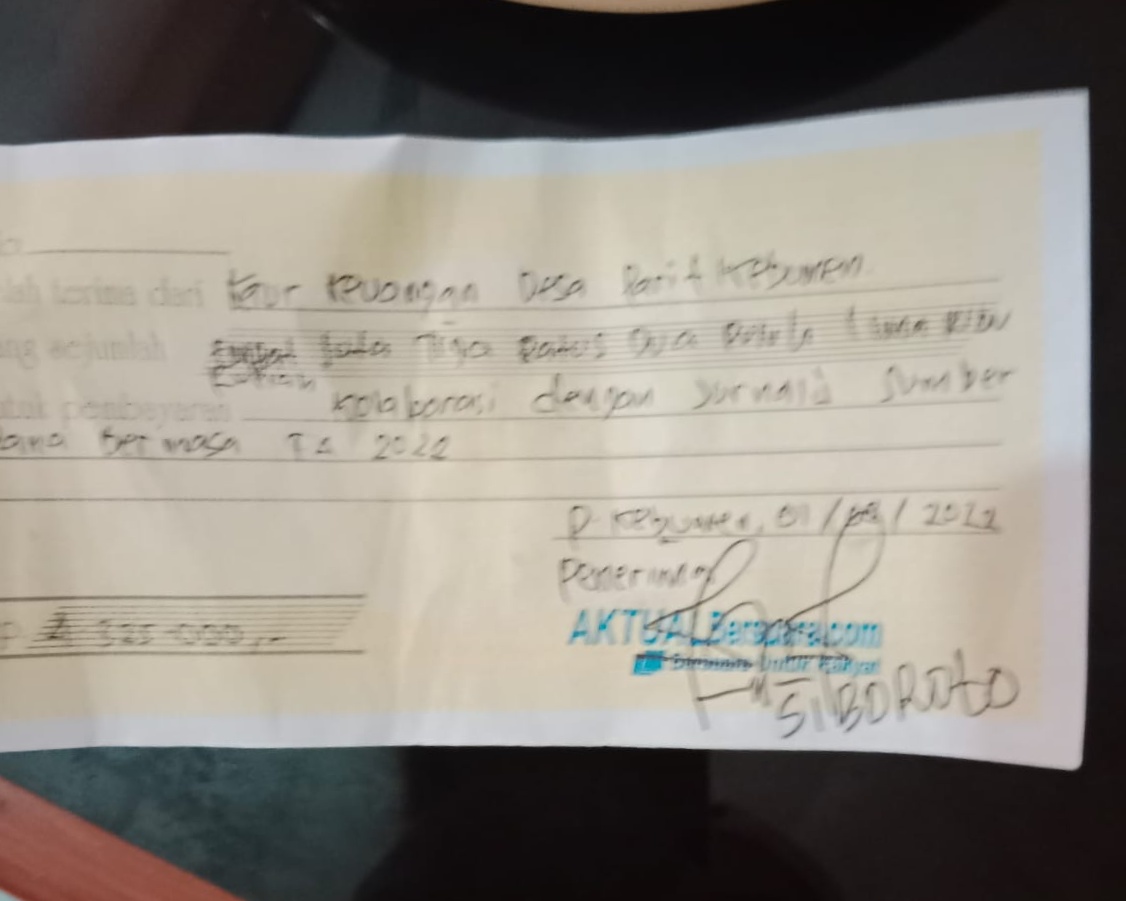 lah terima dari Kaur Keuangan Desa Parit Kebumen
ang sejumlah Empat Juta Tiga Ratus Dua Puluh Lima Ribu
tuk pembayaran Kolaborasi dengan Jurnalis Sumber
Dana Bermasa TA 2022
P. Kebumen, 01 / / 2022
Penerima
AKTUALBersuara.com
Untuk Rakyat
P 4 325.000,-
SIBOROtO